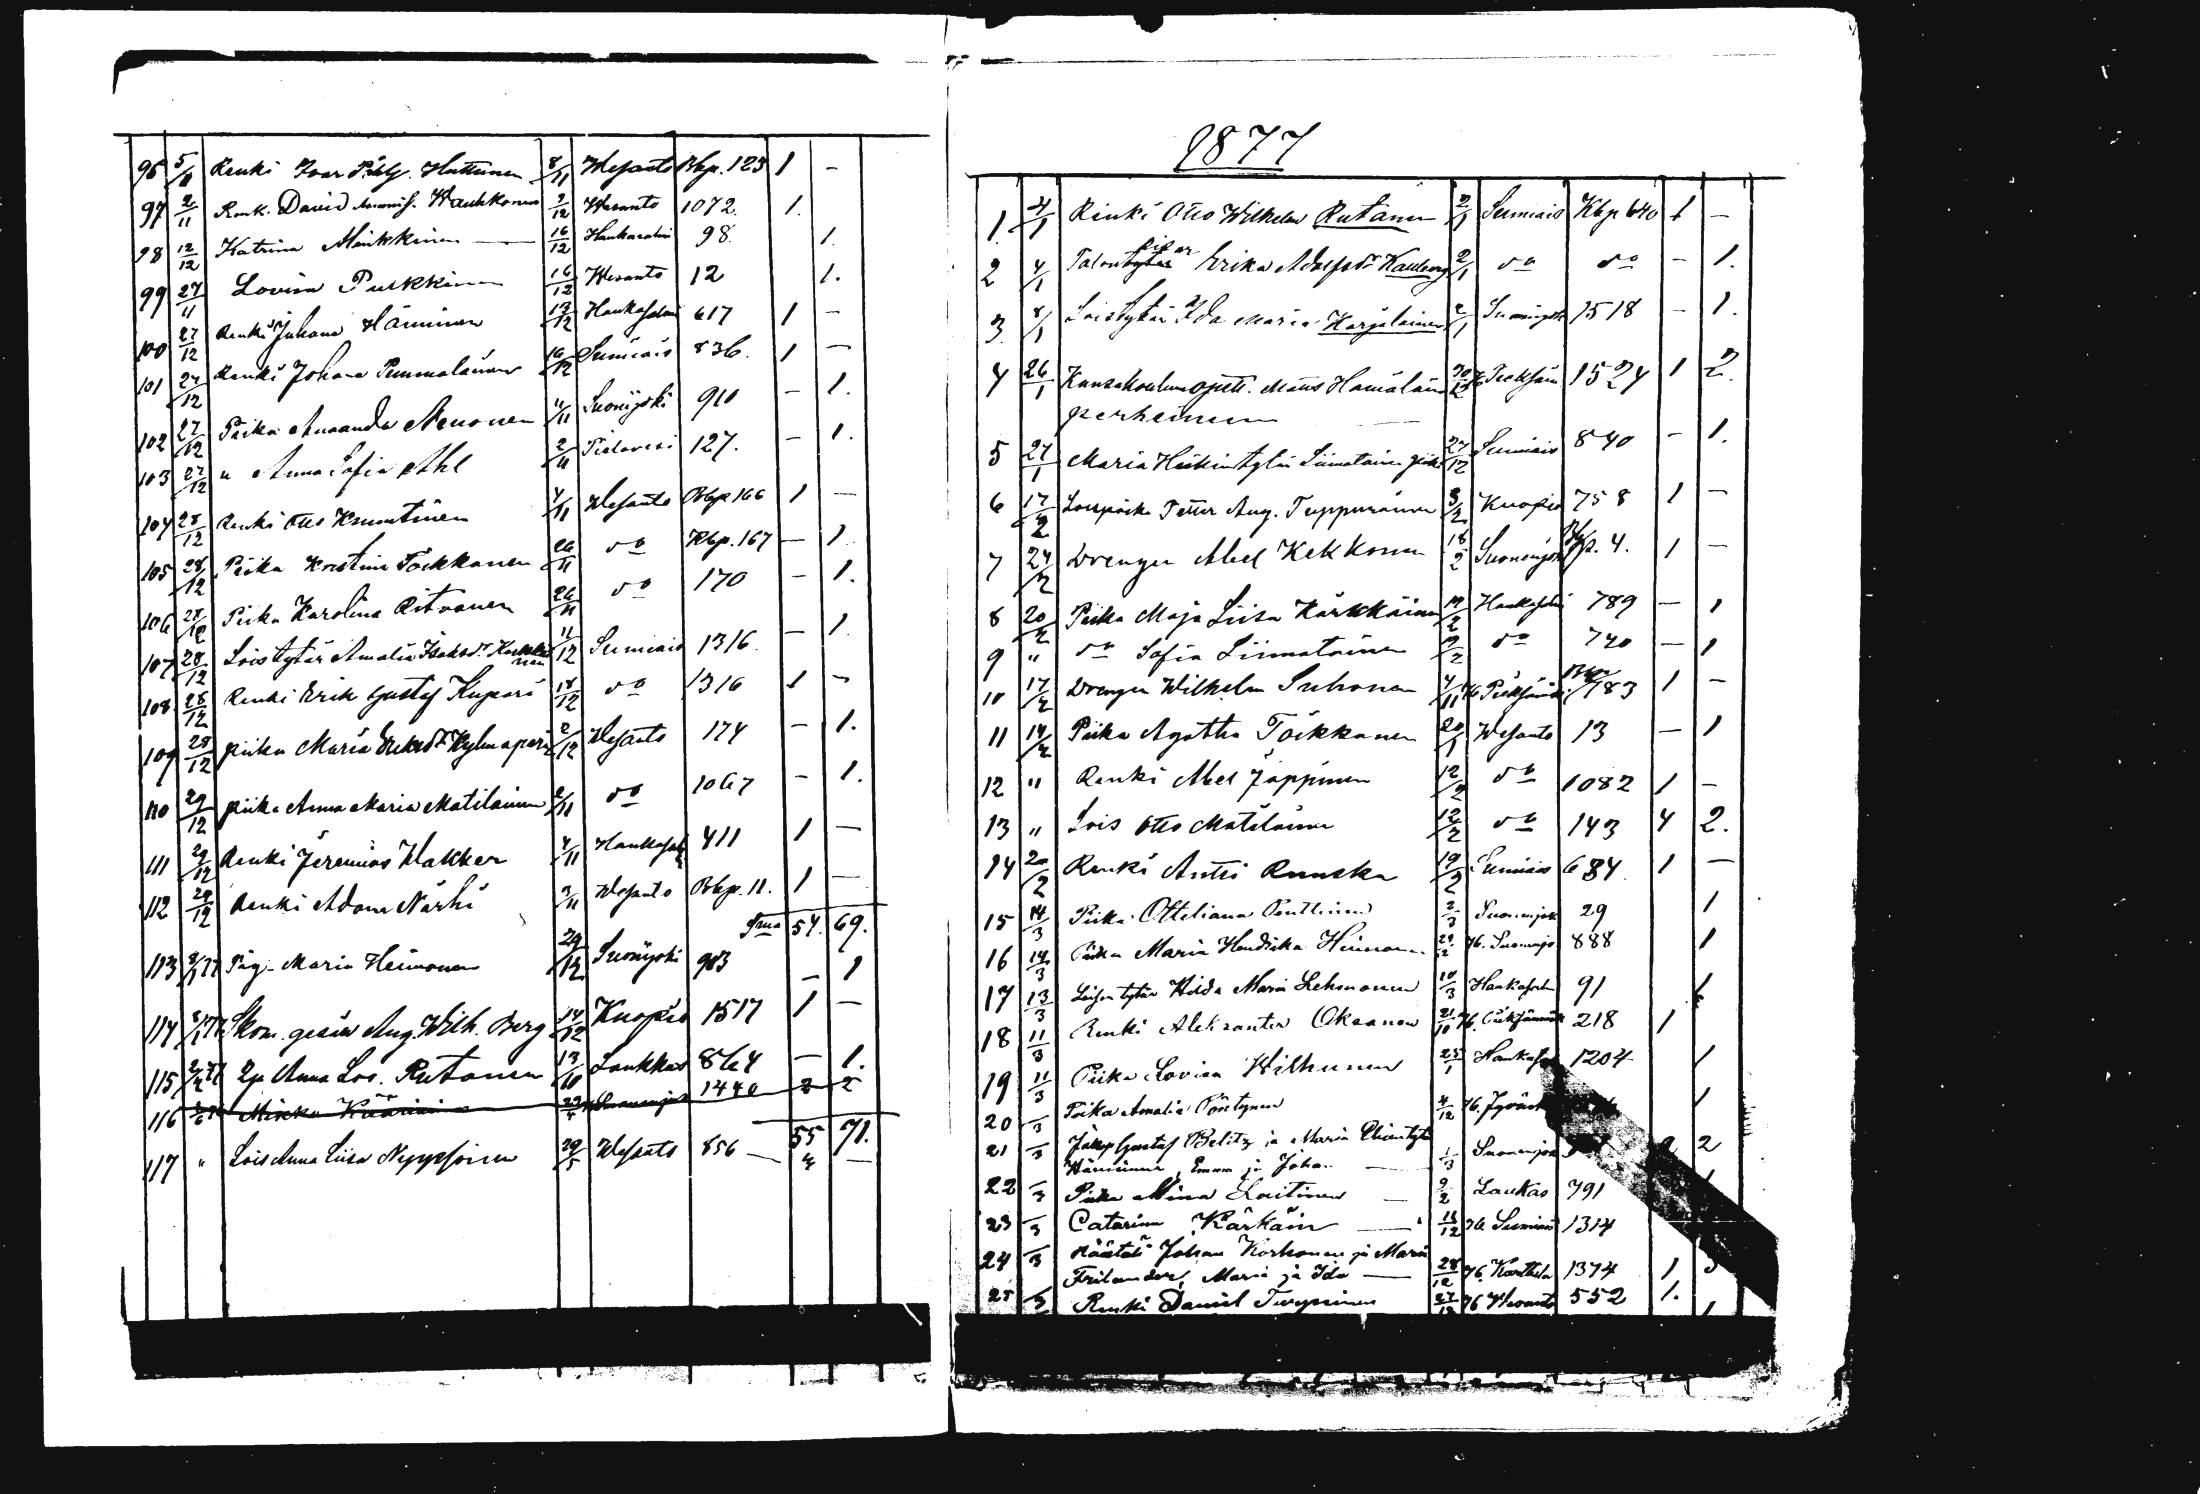 96 5/11 Renki Ivar Huttunen 8/11 Wesanto Bbp. 123 1 -
97 2/11 Renk. David Haukkonen 2/12 Wesanto 1072. 1.
98 12/12 Katrina Minkkinen 16/12 Hankasalmi 98. 1.
99 27/11 Lovisa Purkkinen 16/12 Wesanto 12 1.
100 27/12 Renki Juhana Häninen 12/12 Hankasalmi 617 1 -
101 27/12 Renki Johan Pummalainen 16/12 Sumiais 836. 1 -
102 27/12 Piika Amanda Nenonen 4/11 Suonijoki 910 - 1.
103 27/12 " Anna Sofia Ahl 2/11 Pielavesi 127. - 1.
104 28/12 Renki Otto Knuutinen 4/11 Wesanto Bbp 166 1 -
105 28/12 Piika Kristina Töikkanen 26/11 do Kbp. 167 - 1.
106 28/12 Piika Karolina Ritvanen 26/11 do 170 - 1.
107 28/12 Loistytär Amalia Isaksdr 11/12 Sumiais 1316. - 1.
108 28/12 Renki Erik Gustaf Kupari 18/12 do 1316 1 -
109 28/12 piika Maria Eriksdr 2/12 Wesanto 174 - 1.
110 29/12 piika Anna Maria Matilainen 2/11 do 1067 - 1.
111 29/12 Renki Jeremias Hakker 4/11 Hankasalmi 411 1 -
112 29/12 Renki Adam Närhi 2/11 Wesanto Bbp. 11. 1 -
Sma 54. 69.
113 Pig. Maria Heinonen 29/12 Suonijoki 903 - 1
114 Skom. gesäll Aug. Wilh. Berg 14/12 Kuopio 1517 1 -
115 Anna Lov. Rutanen 13/10 Laukkas 864 - 1.
116 Minka 1440 2 2
55 71.
117 " Lois Anna Liisa Nyyssönen 29/5 Wesanto 856 -
1877
1. 4/1 Renki Otto Wilhelm Rutanen 2/1 Sumiais Kbp 640 1 -
2 4/1 Talontytär Erika Adolfsdr 2/1 do do - 1.
3. 8/1 Loistytär Ida Maria Karjalainen 2/1 Suonenjoki 1518 - 1.
4 26/1 Kansakoulun opett. Matts Hämäläinen Pieksäm 1524 1 2.
perheineen
5 27/1 Maria Heikintytär Liimatainen piika 27/12 Sumiais 840 - 1.
6 17/2 Petter Aug. Tuppurainen 3/2 Kuopio 758 1 -
7 24/2 Drengen Abel Kekkonen 18/2 Suonenjoki Bbp. 4. 1 -
8 20/2 Piika Maja Liisa Kärkkäinen Hankasalmi 789 - 1
9 " do Sofia Liimatainen do 740 - 1
10 17/2 Drengen Wilhelm Suhonen 4/11 76 Pieksämäki 783 1 -
11 14/2 Piika Agatha Töikkanen 20/1 Wesanto 13 - 1
12 " Renki Abel Jäppinen 12/2 do 1082 1 -
13 " Lois Otto Matilainen 12/2 do 143 4 2.
14 20/2 Renki Antti Ruuska 19/2 Sumiais 684. 1 -
15 14/3 Piika Otteliana Penttinen 2/3 Suonenjoki 29 1
16 14/3 Piika Maria Hendrika Heinonen 76. Suonenjo 888 1
17 13/3 Loisentytär Hilda Maria Lehmonen 10/3 Hankasalmi 91 1
18 11/3 Renki Aleksanter Oksanen 21/10 76. Pieksämäki 218 1
19 11/3 Piika Lovisa Hilhunen 25/1 Hankasalmi 1204 1
20 /3 Piika Amalia Pöntynen 4/12 76. Jyväsk 1
21 /3 Jakop Gustaf Belitz ja Maria
Emma ja Johan 1/3 Suonenjoki 2 2
22 /3 Piika Miina Laitinen 9/2 Laukas 791
23 /3 Catarina Kärkäin 18/12 76 Sumiais 1314
24 /3 Räätäli Johan Korhonen ja Maria
Frilander, Maria ja Ida 28/12 76. Karttula 1374 1
25 /3 Renki Daniel Turpeinen 27/12 76 Wesanto 552 1.